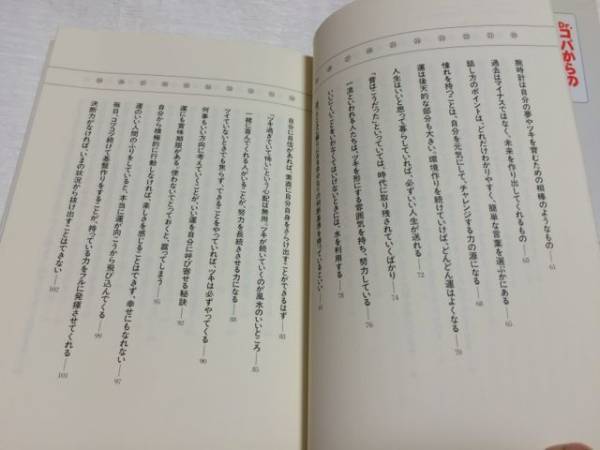 Dr.コパからの
腕時計は自分の夢やツキを育むための相棒のようなもの 61
過去はマイナスではなく、未来を作り出してくれるもの 60
話し方のポイントは、どれだけわかりやすく、簡単な言葉を選ぶかにある 65
憧れを持つことは、自分を元気にして、チャレンジする力の源になる 68
運は後天的な部分も大きい。環境作りを続けていけば、どんどん運はよくなる 70
人生はいいと思って暮らしていれば、必ずいい人生が送れる 72
「昔はこうだった」といっていては、時代に取り残されていくばかり 74
一流といわれる人たちは、ツキを形にする雰囲気を持ち、努力している 76
いいにくいことをいわなくてはいけないときには、水を利用する 78
自分に自信があれば、素直に自分自身をさらけ出すことができるはず 83
「ツキ過ぎていて怖い」という心配は無用。ツキが続いていくのが風水のいいところ 85
一緒に喜んでくれる人がいることが、努力を長続きさせる力になる 88
ツイていないときでも焦らず、できることをやっていれば、ツキは必ずやってくる 90
何事もいい方向に考えていくことが、いい運を自分に呼び寄せる秘訣 92
運にも賞味期限がある。使わないでとっておくと、腐ってしまう 95
自分から積極的に行動しなければ、楽しさを感じることはできず、幸せにもなれない 97
運のいい人間のふりをしていると、本当に運が向こうから飛び込んでくる 99
毎日、コツコツ続けて基盤作りをすることが、持っている力をフルに発揮させてくれる 101
決断力がなければ、いまの状況から抜け出すことはできない 102